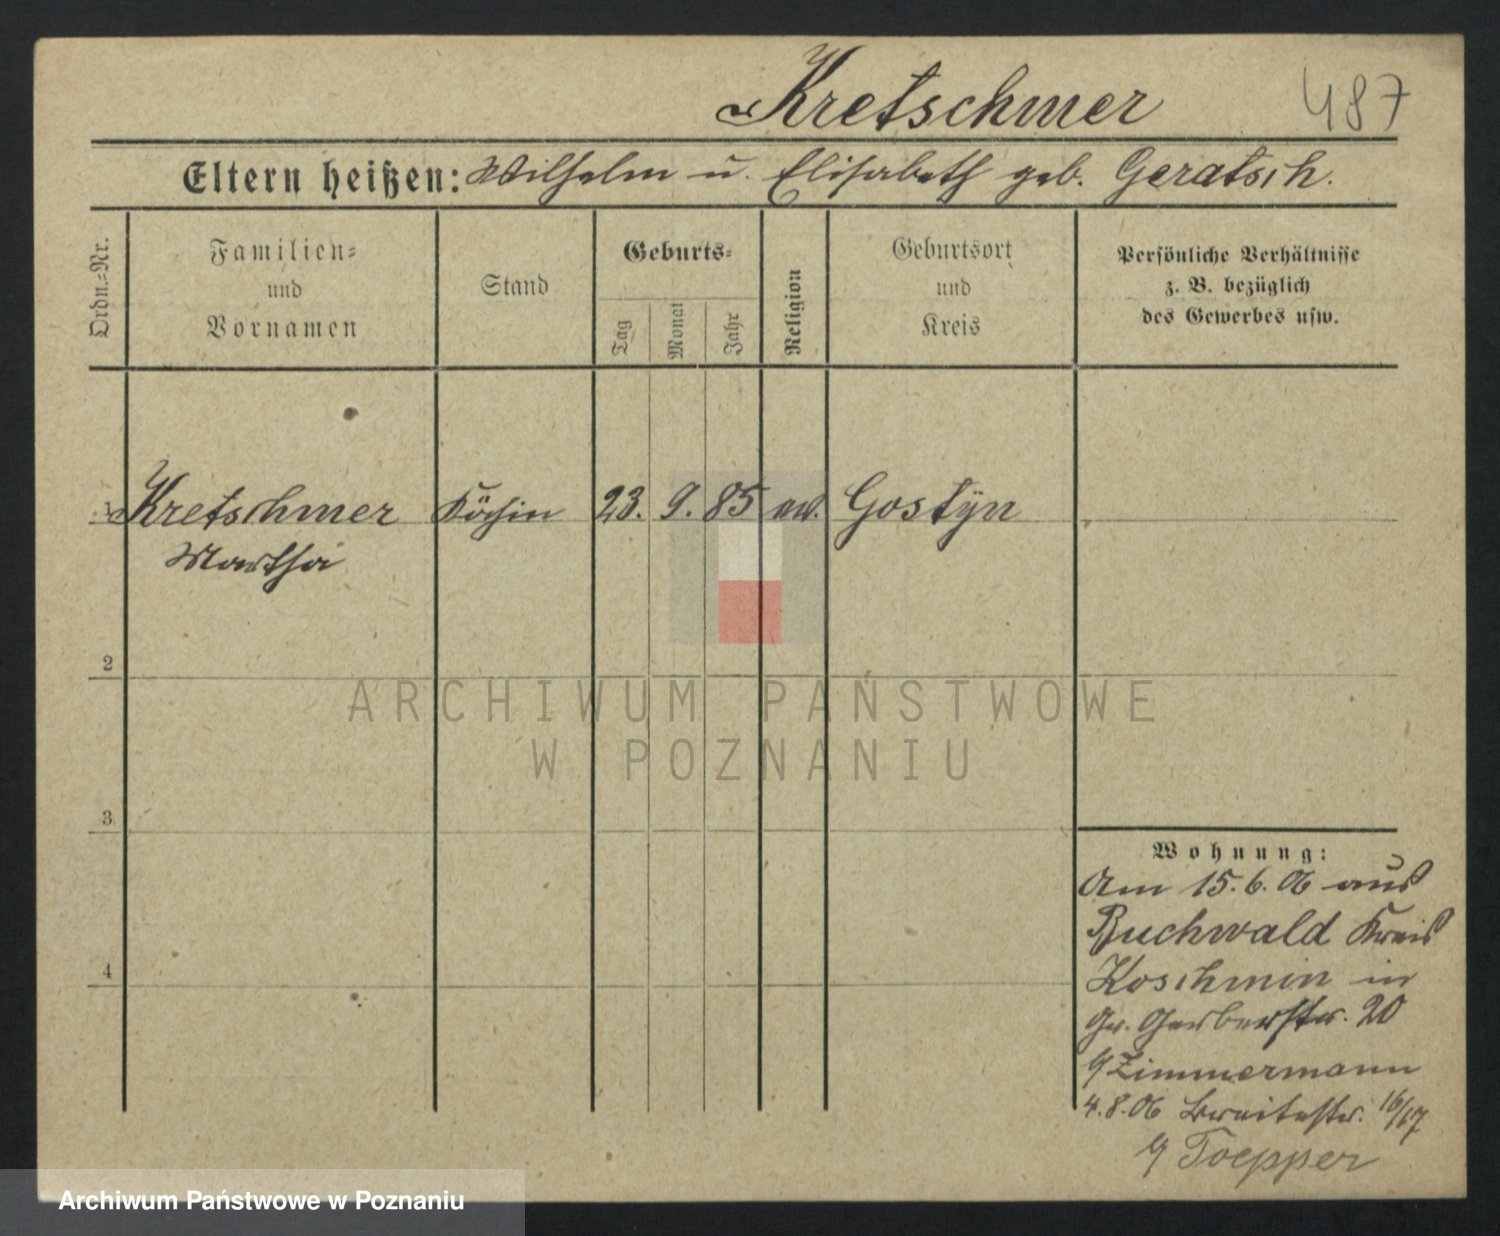 Kretschmer 487
Eltern heißen: Wilhelm u. Elisabeth geb. Geratsch.
Ordn.-Nr.
Familien-
und
Vornamen
Stand
Geburts-
Tag
Monat
Jahr
Religion
Geburtsort
und
Kreis
Persönliche Verhältnisse
z. B. bezüglich
des Gewerbes usw.
1 Kretschmer Köchin 23. 9. 85 ev. Gostyn
Martha
2
ARCHIWUM PAŃSTWOWE
W POZNANIU
3
Wohnung:
Am 15.6.06 aus
Buchwald Kreis
4
Koschmin in
Gr. Gerberstr. 20
Zimmermann
4.8.06 Breitestr. 16/17
Toepper
Archiwum Państwowe w Poznaniu